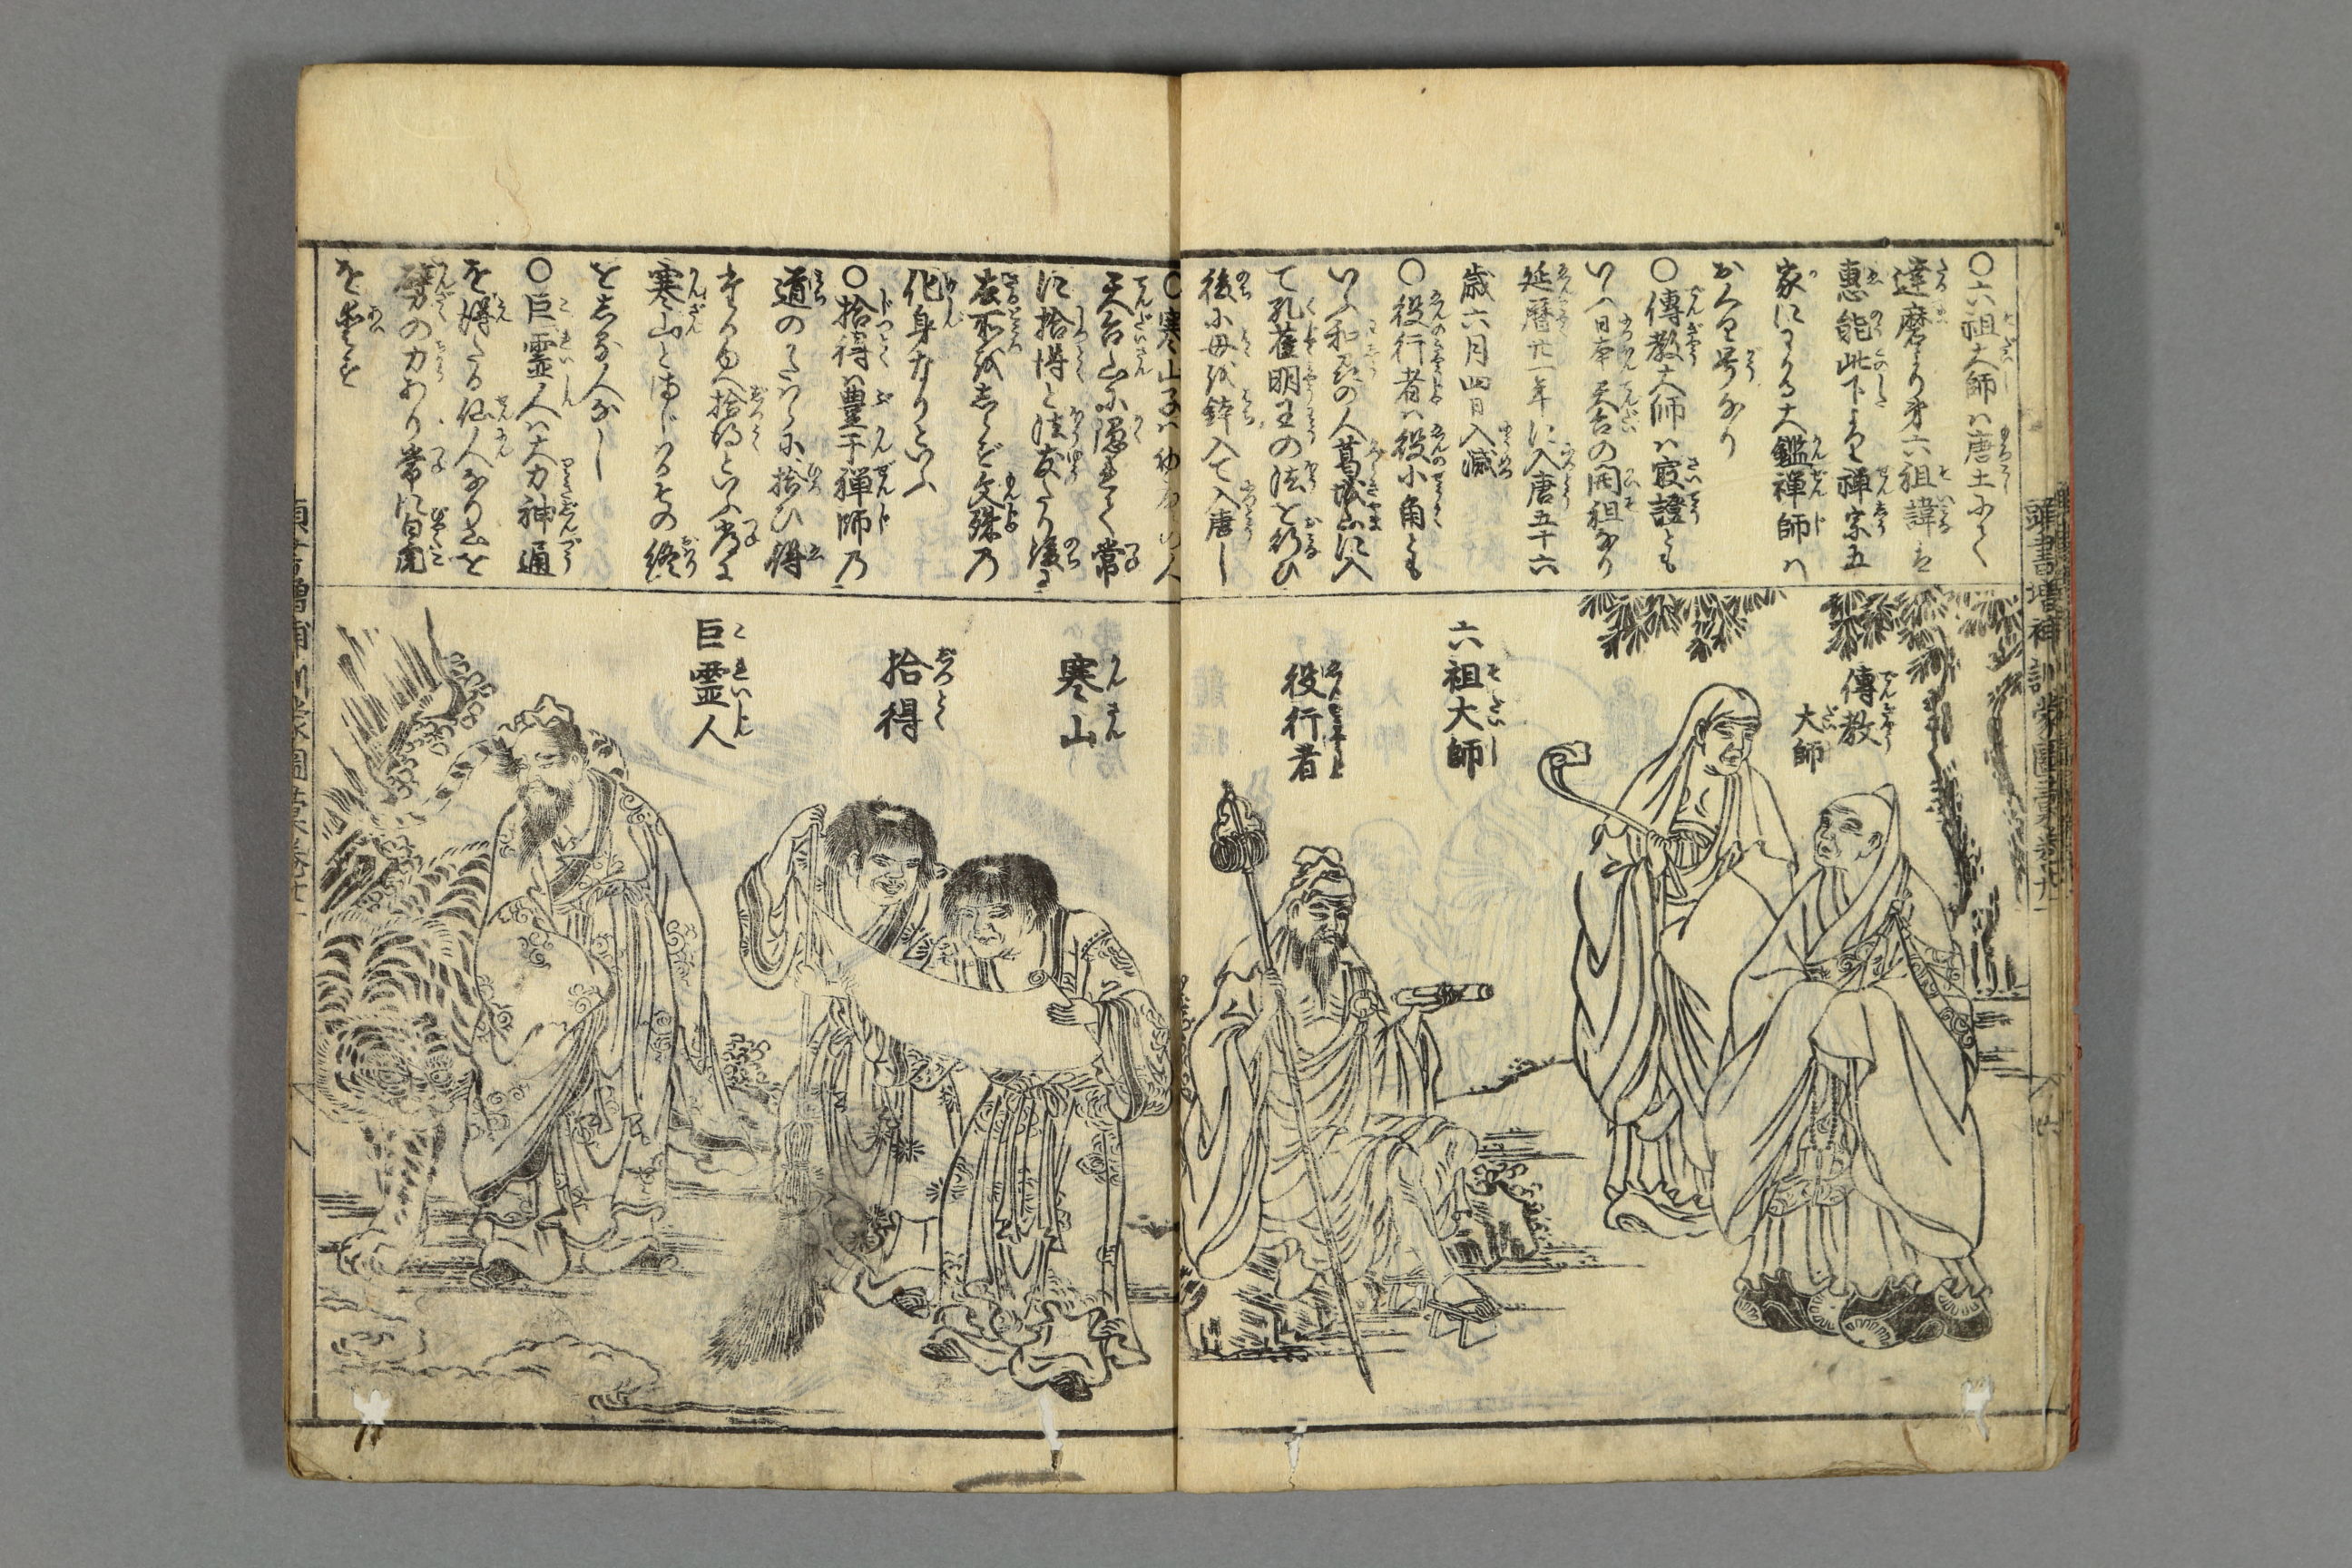 〇六祖大師ハ唐土にて
達磨より第六祖諱は
惠能此下より禅宗五
家にわかる大鑑禅師ハ
おくり号なり
〇傳教大師ハ最證とも
いへ日本天台の開祖なり
延暦廿一年に入唐五十六
歳六月四日入滅
〇役行者ハ役小角とも
いふ和列の人葛城山に入
て孔雀明王の法を行ひ
後に母を鉢に入て入唐し
〇寒山子ハ
天台山に隠れて常
に拾得と法友たり後に
在所を志らず文殊乃
化身なりといふ
〇拾得ハ豊干禅師乃
道のかたハらに拾ひ得
たるゆへ拾得といふ常に
寒山とまじハる其の終
を志る人なし
〇巨霊人ハ大力神通
を得たる仙人なり山を
劈の力あり常に白虎
を愛す
傳教大師
六祖大師
役行者
寒山
拾得
巨霊人
頭書増補訓蒙圖彙巻廿一